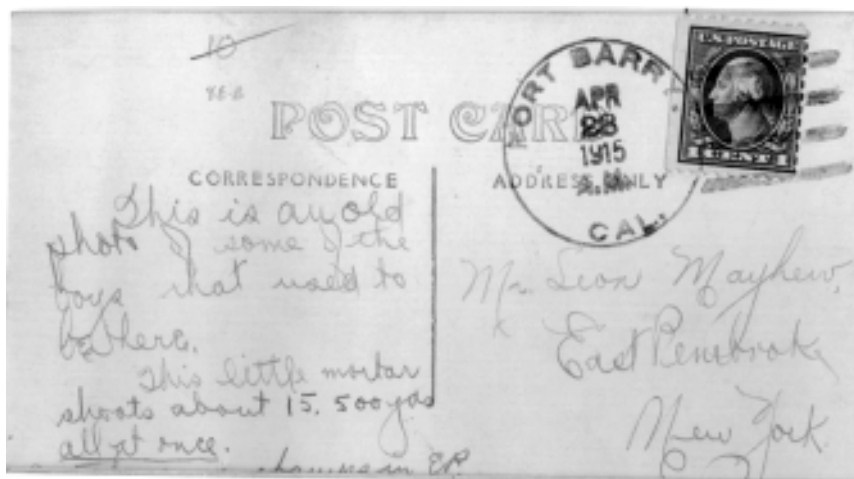 10
POST CARD
CORRESPONDENCE
ADDRESS ONLY
FORT BARRY.
APR
28
1915
A.M.
CAL.
U.S. POSTAGE
1 CENT 1
This is an old
photo of some of the
boys that used to
be here.
This little mortar
shoots about 15,500 yds
all at once.
in E.P.
Mr. Leon Mayhew,
East Pembroke,
New York.